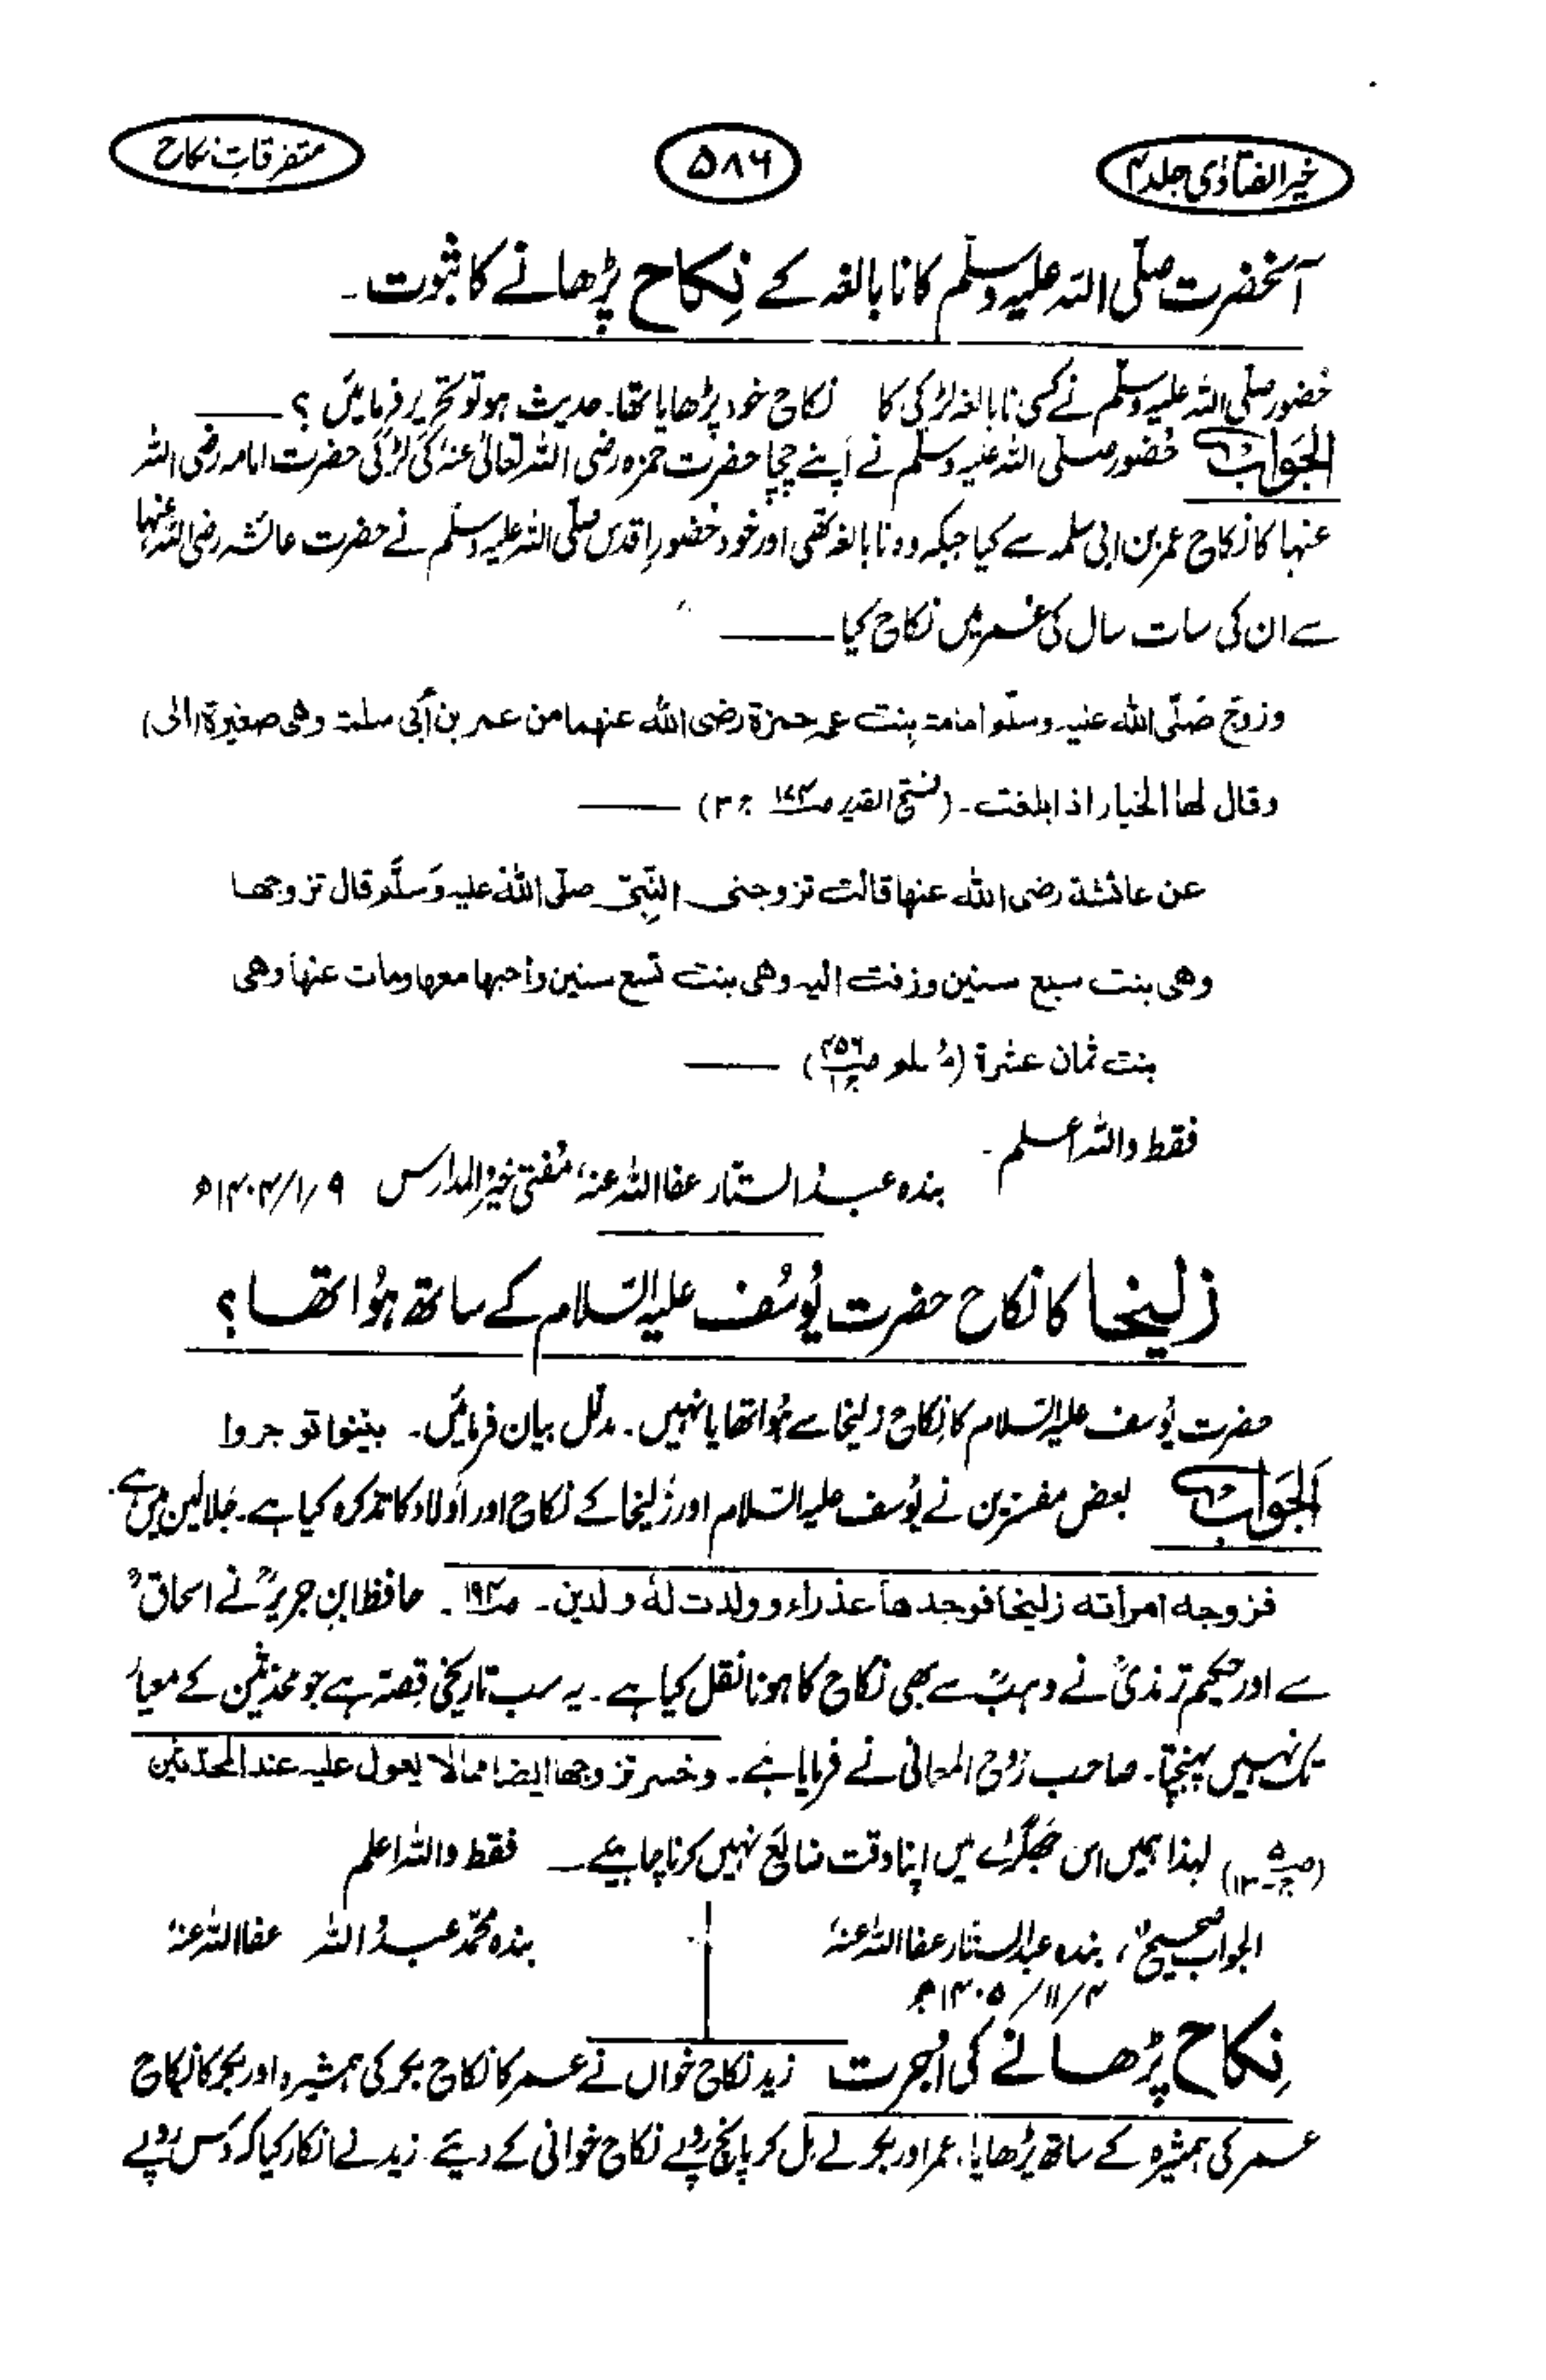 خیر الفتاوٰی جلد ۴
۵۸۶
متفرقاتِ نکاح
آنحضرت صلّی اللہ علیہ وسلّم کا نابالغہ کے نِکاح پڑھانے کا ثبوت۔
حُضور صلّی اللہ علیہ وسلّم نے کسی نابالغہ لڑکی کا نکاح خود پڑھایا تھا۔ حدیث ہو تو تحریر فرمائیں ؟
الجَوابُ حُضور صلی اللہ علیہ وسلّم نے اپنے چچا حضرت حمزہ رضی اللہ تعالیٰ عنہ کی لڑکی حضرت امامہ رضی اللہ
عنہا کا نکاح عمر بن ابی سلمہ سے کیا جبکہ وہ نابالغہ تھی اور خود حُضورِ اقدس صلّی اللہ علیہ وسلّم نے حضرت عائشہ رضی اللہ عنہا
سے ان کی سات سال کی عمر میں نکاح کیا
وزوج صَلّی اللہ علیہ وسلّم امامۃ بِنت عمہ حمزۃ رضی اللہ عنہما من عمر بن أبی سلمۃ وھی صغیرۃ (الیٰ)
وقال لھا الخیار اذا بلغت۔ (فتح القدیر ص۱۷۴ ج۳)
عن عائشۃ رضی اللہ عنہا قالت تزوجنی النّبِیّ صلّی اللہ علیہ وَسلَّم قال تزوجھا
وھی بنت سبع سنین وزفت الیہ وھی بنت تسع سنین ولعبہا معہا ومات عنہا وھی
بنت ثمان عشرۃ (مُسلم ص۴۵۶ ج۱)
فقط واللہ اعلم۔
بندہ عبدُ السّتار عفا اللہ عنہ، مُفتی خیرُ المدارس ۱۴۰۴/۱/۹ھ
زلیخا کا نکاح حضرت یُوسُف علیہ السّلام کے ساتھ ہُوا تھا ؟
حضرت یُوسف علیہ السّلام کا نِکاح زلیخا سے ہُوا تھا یا نہیں۔ مدلّل بیان فرمائیں۔ بیّنوا تو جروا
اَلجَوابُ بعض مفسّرین نے یُوسف علیہ السّلام اور زُلیخا کے نکاح اور اَولاد کا تذکرہ کیا ہے۔ جَلالَین میں ہے۔
فزوجہ امرأتہ زلیخا فوجدھا عذراء وولدت لہٗ ولدین۔ ص۱۹۴۔ حافظ ابن جریرؒ نے اسحاقؒ
سے اور حکیم ترمذیؒ نے وہبؒ سے بھی نکاح کا ہونا نقل کیا ہے۔ یہ سب تاریخی قِصّہ ہے جو محدّثین کے معیار
تک نہیں پہنچتا۔ صاحب رُوح المعانی نے فرمایا ہے۔ وخبر تزوجھا ایضا مما لا یعول علیہ عند المحدّثین
(ص۵ ج۱۳) لہذا ہمیں اس جھگڑے میں اپنا وقت ضائع نہیں کرنا چاہیئے۔ فقط واللہ اعلم
الجواب صحیح، بندہ عبد الستار عفا اللہ عنہٗ
بندہ محمّد عبدُ اللہ عفا اللہ عنہ
۱۴۰۵/۱۱/۴ھ
نِکاح پڑھانے کی اُجرت زید نکاح خواں نے عمر کا نکاح بکر کی ہمشیرہ اور بکر کا نکاح
عمر کی ہمشیرہ کے ساتھ پڑھایا، عمر اور بکر نے مل کر پانچ روپے نکاح خوانی کے دیئے۔ زید نے انکار کیا کہ دَس روپے